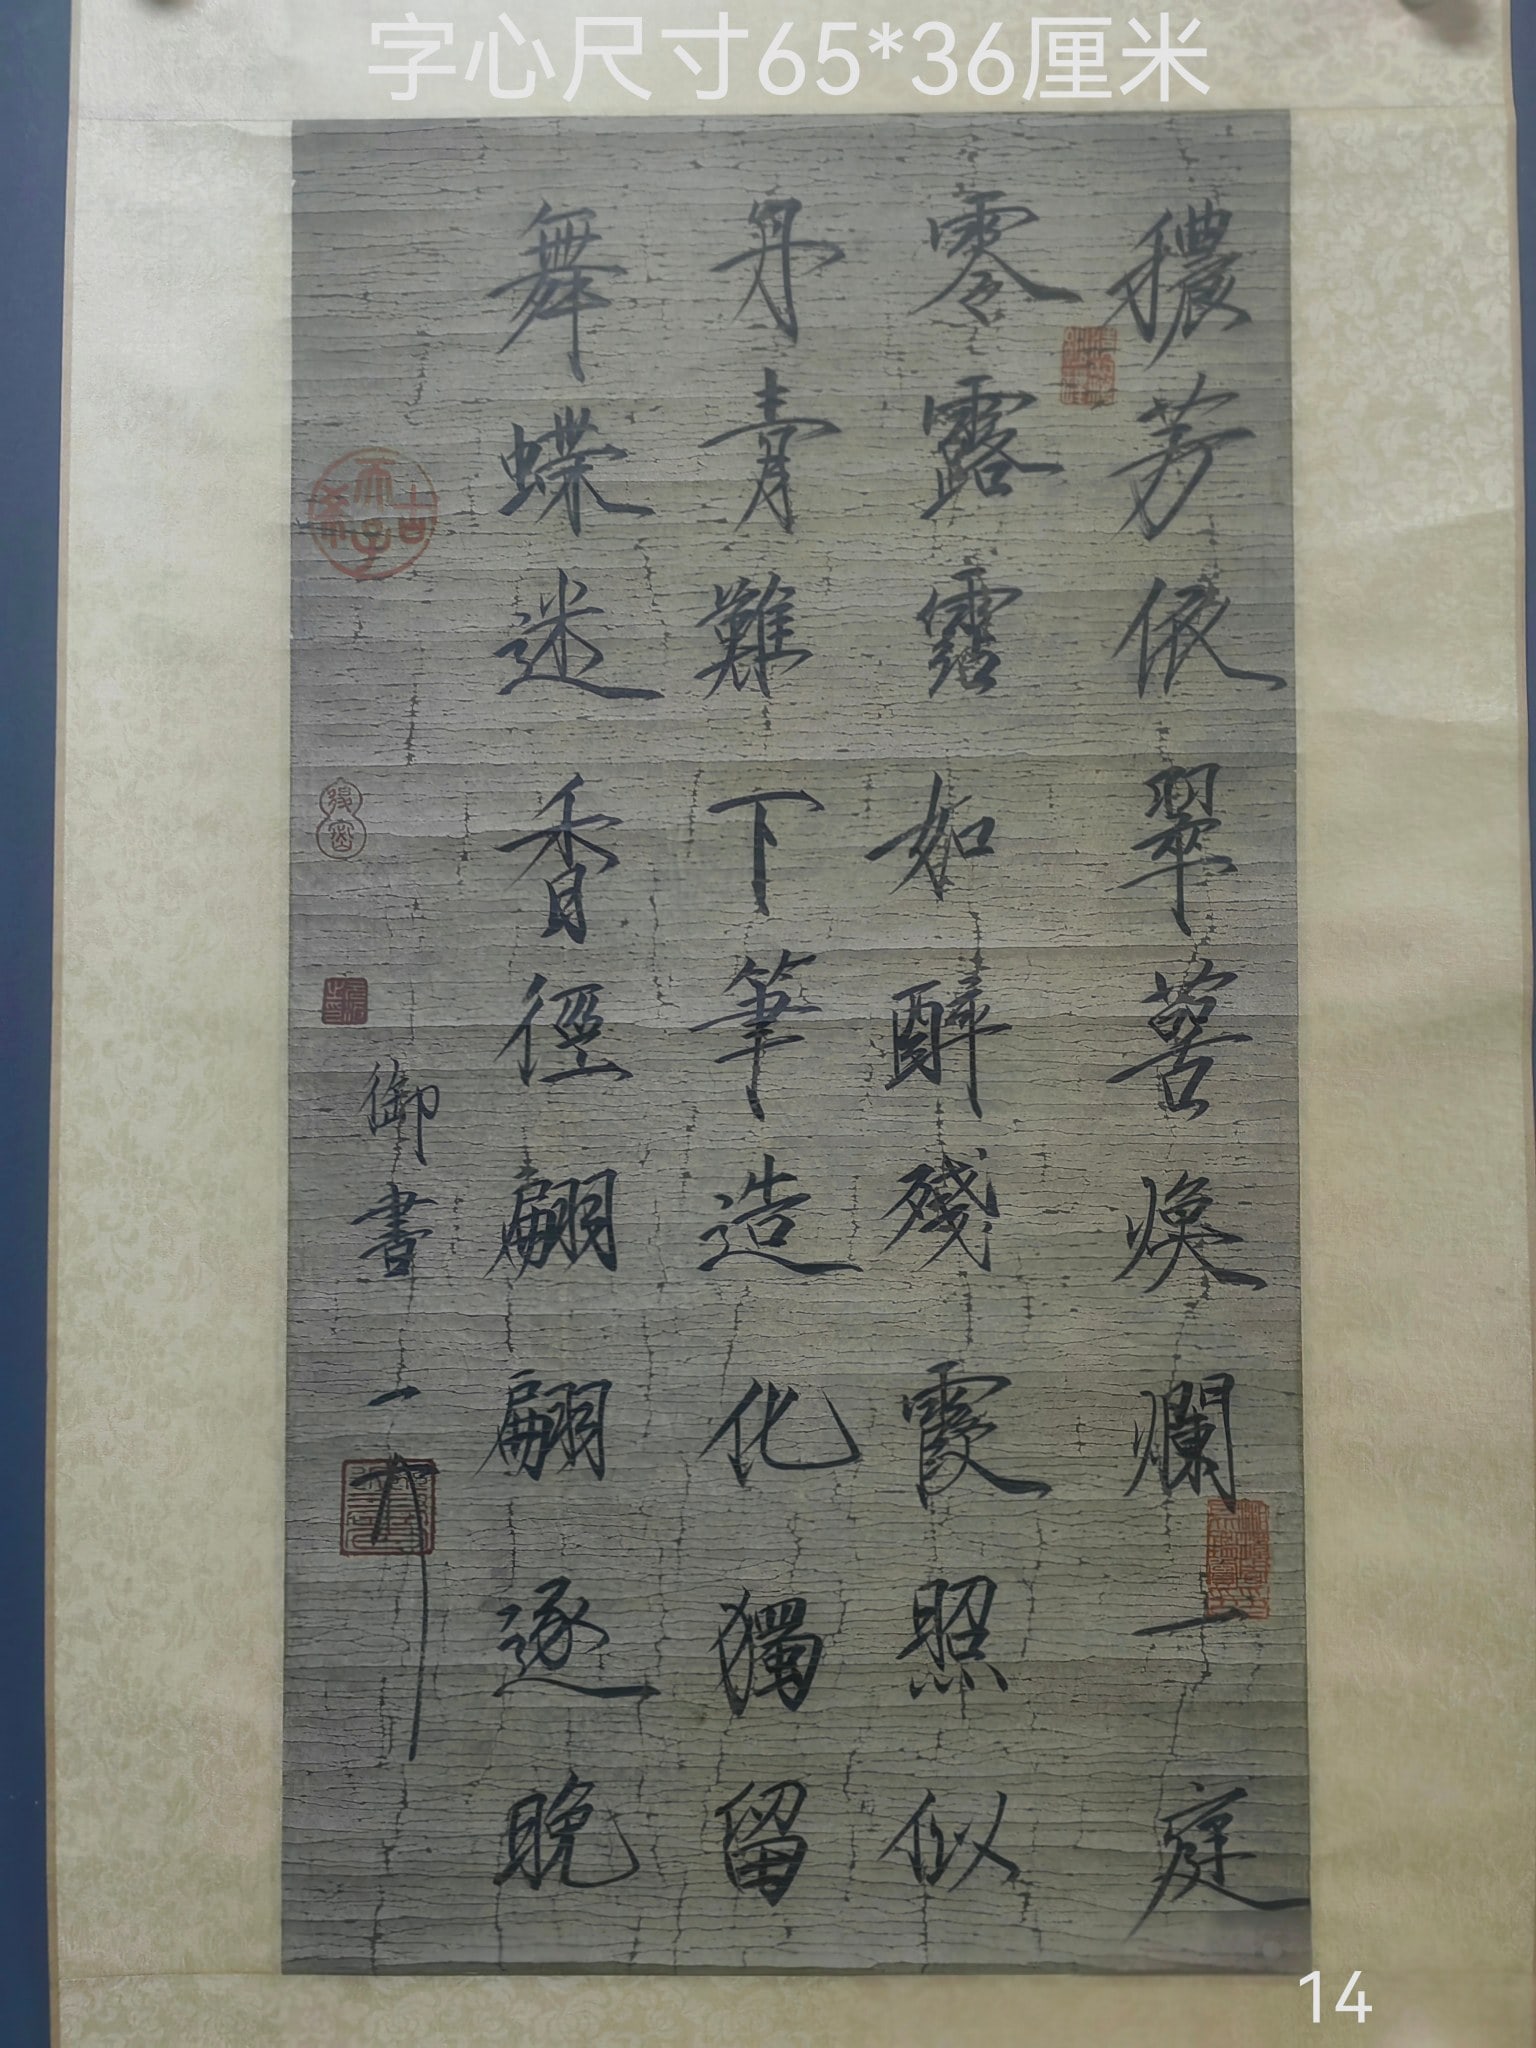 字心尺寸65*36厘米
穠芳依翠萼煥爛一庭
零露霑如醉殘霞照似
丹青難下筆造化獨留
舞蝶迷香徑翩翩逐晚
御書
古希天子
14